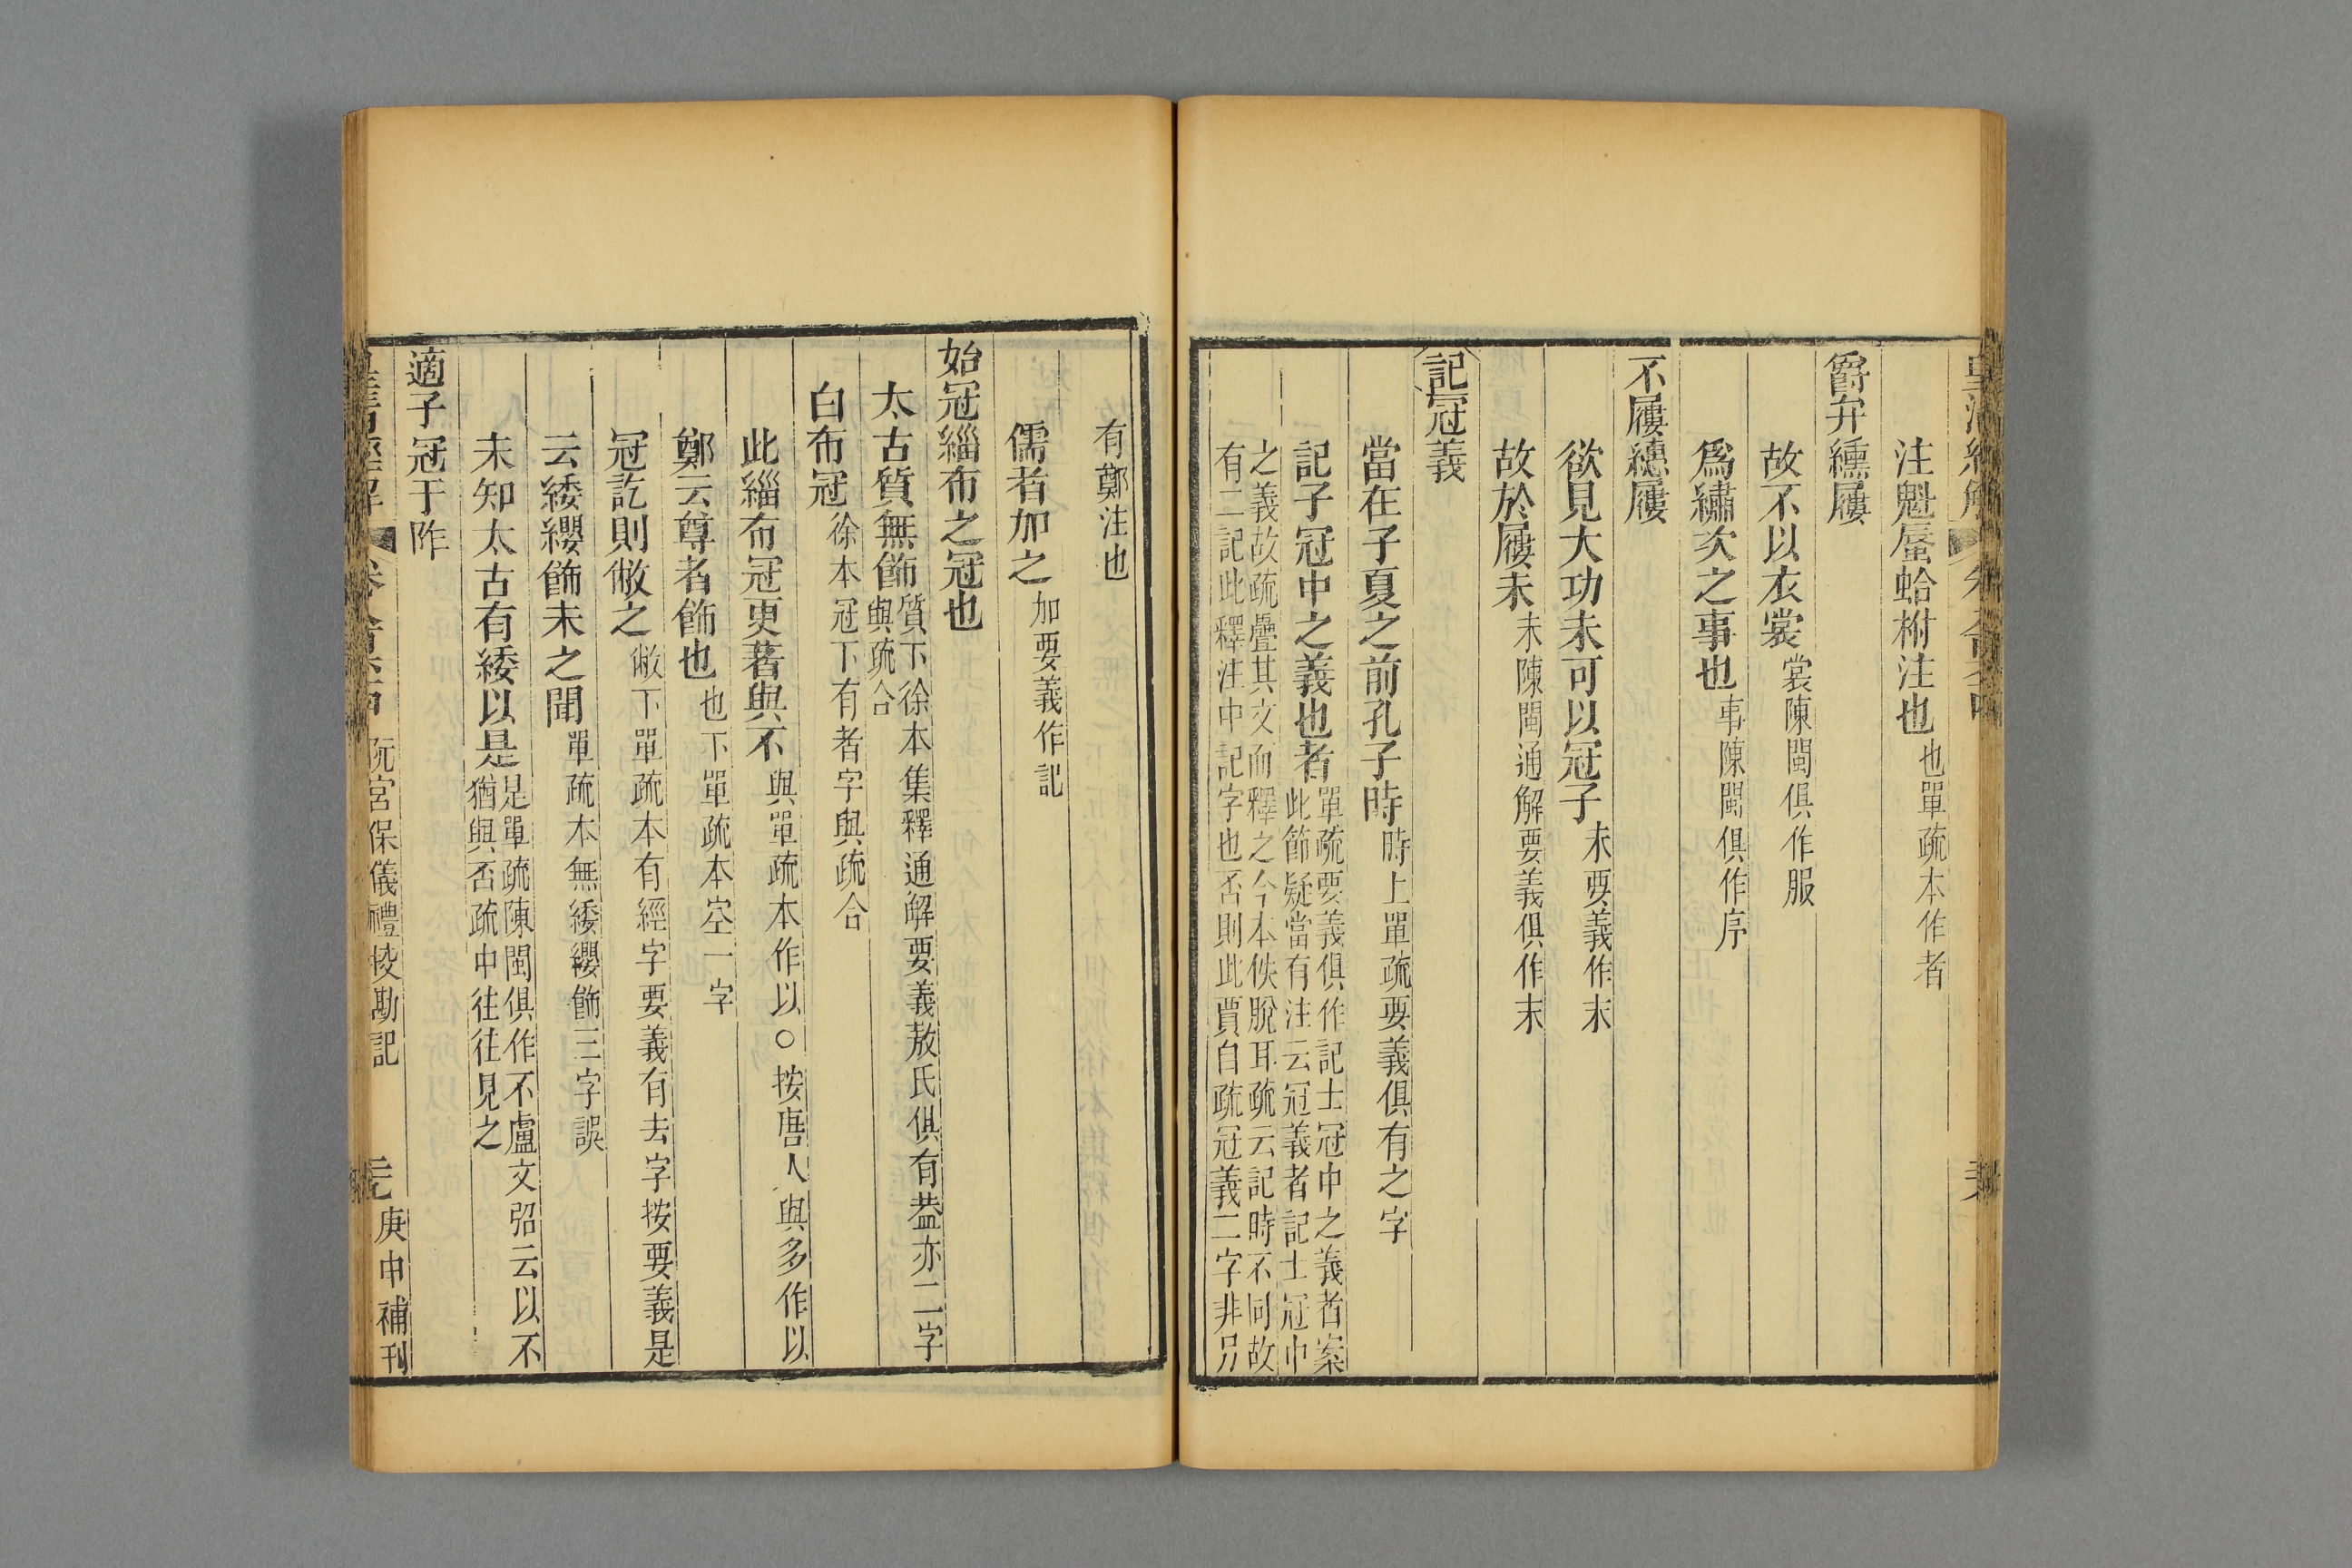 注魁蜃蛤柎注也也單疏本作者
爵弁纁屨
故不以衣裳裳陳閩俱作服
爲繡次之事也事陳閩俱作序
不屨繐屨
欲見大功未可以冠子未要義作末
故於屨末未陳閩通解要義俱作末
記冠義
當在子夏之前孔子時時上單疏要義俱有之字
記子冠中之義也者單疏要義俱作記士冠中之義者案
此節疑當有注云冠義者記士冠中
之義故疏疊其文而釋之今本佚脫耳疏云記時不同故
有二記此釋注中記字也否則此賈自疏冠義二字非另
有鄭注也
儒者加之加要義作記
始冠緇布之冠也
太古質無飾質下徐本集釋通解要義敖氏俱有蓋亦二字
與疏合
白布冠徐本冠下有者字與疏合
此緇布冠更著與不與單疏本作以○按唐人與多作以
鄭云尊者飾也也下單疏本空一字
冠訖則敝之敝下單疏本有經字要義有去字按要義是
云緌纓飾未之聞單疏本無緌纓飾三字誤
未知太古有緌以是是單疏陳閩俱作不盧文弨云以不
猶與否疏中往往見之
適子冠于阼
阮宮保儀禮挍勘記 庚申補刊